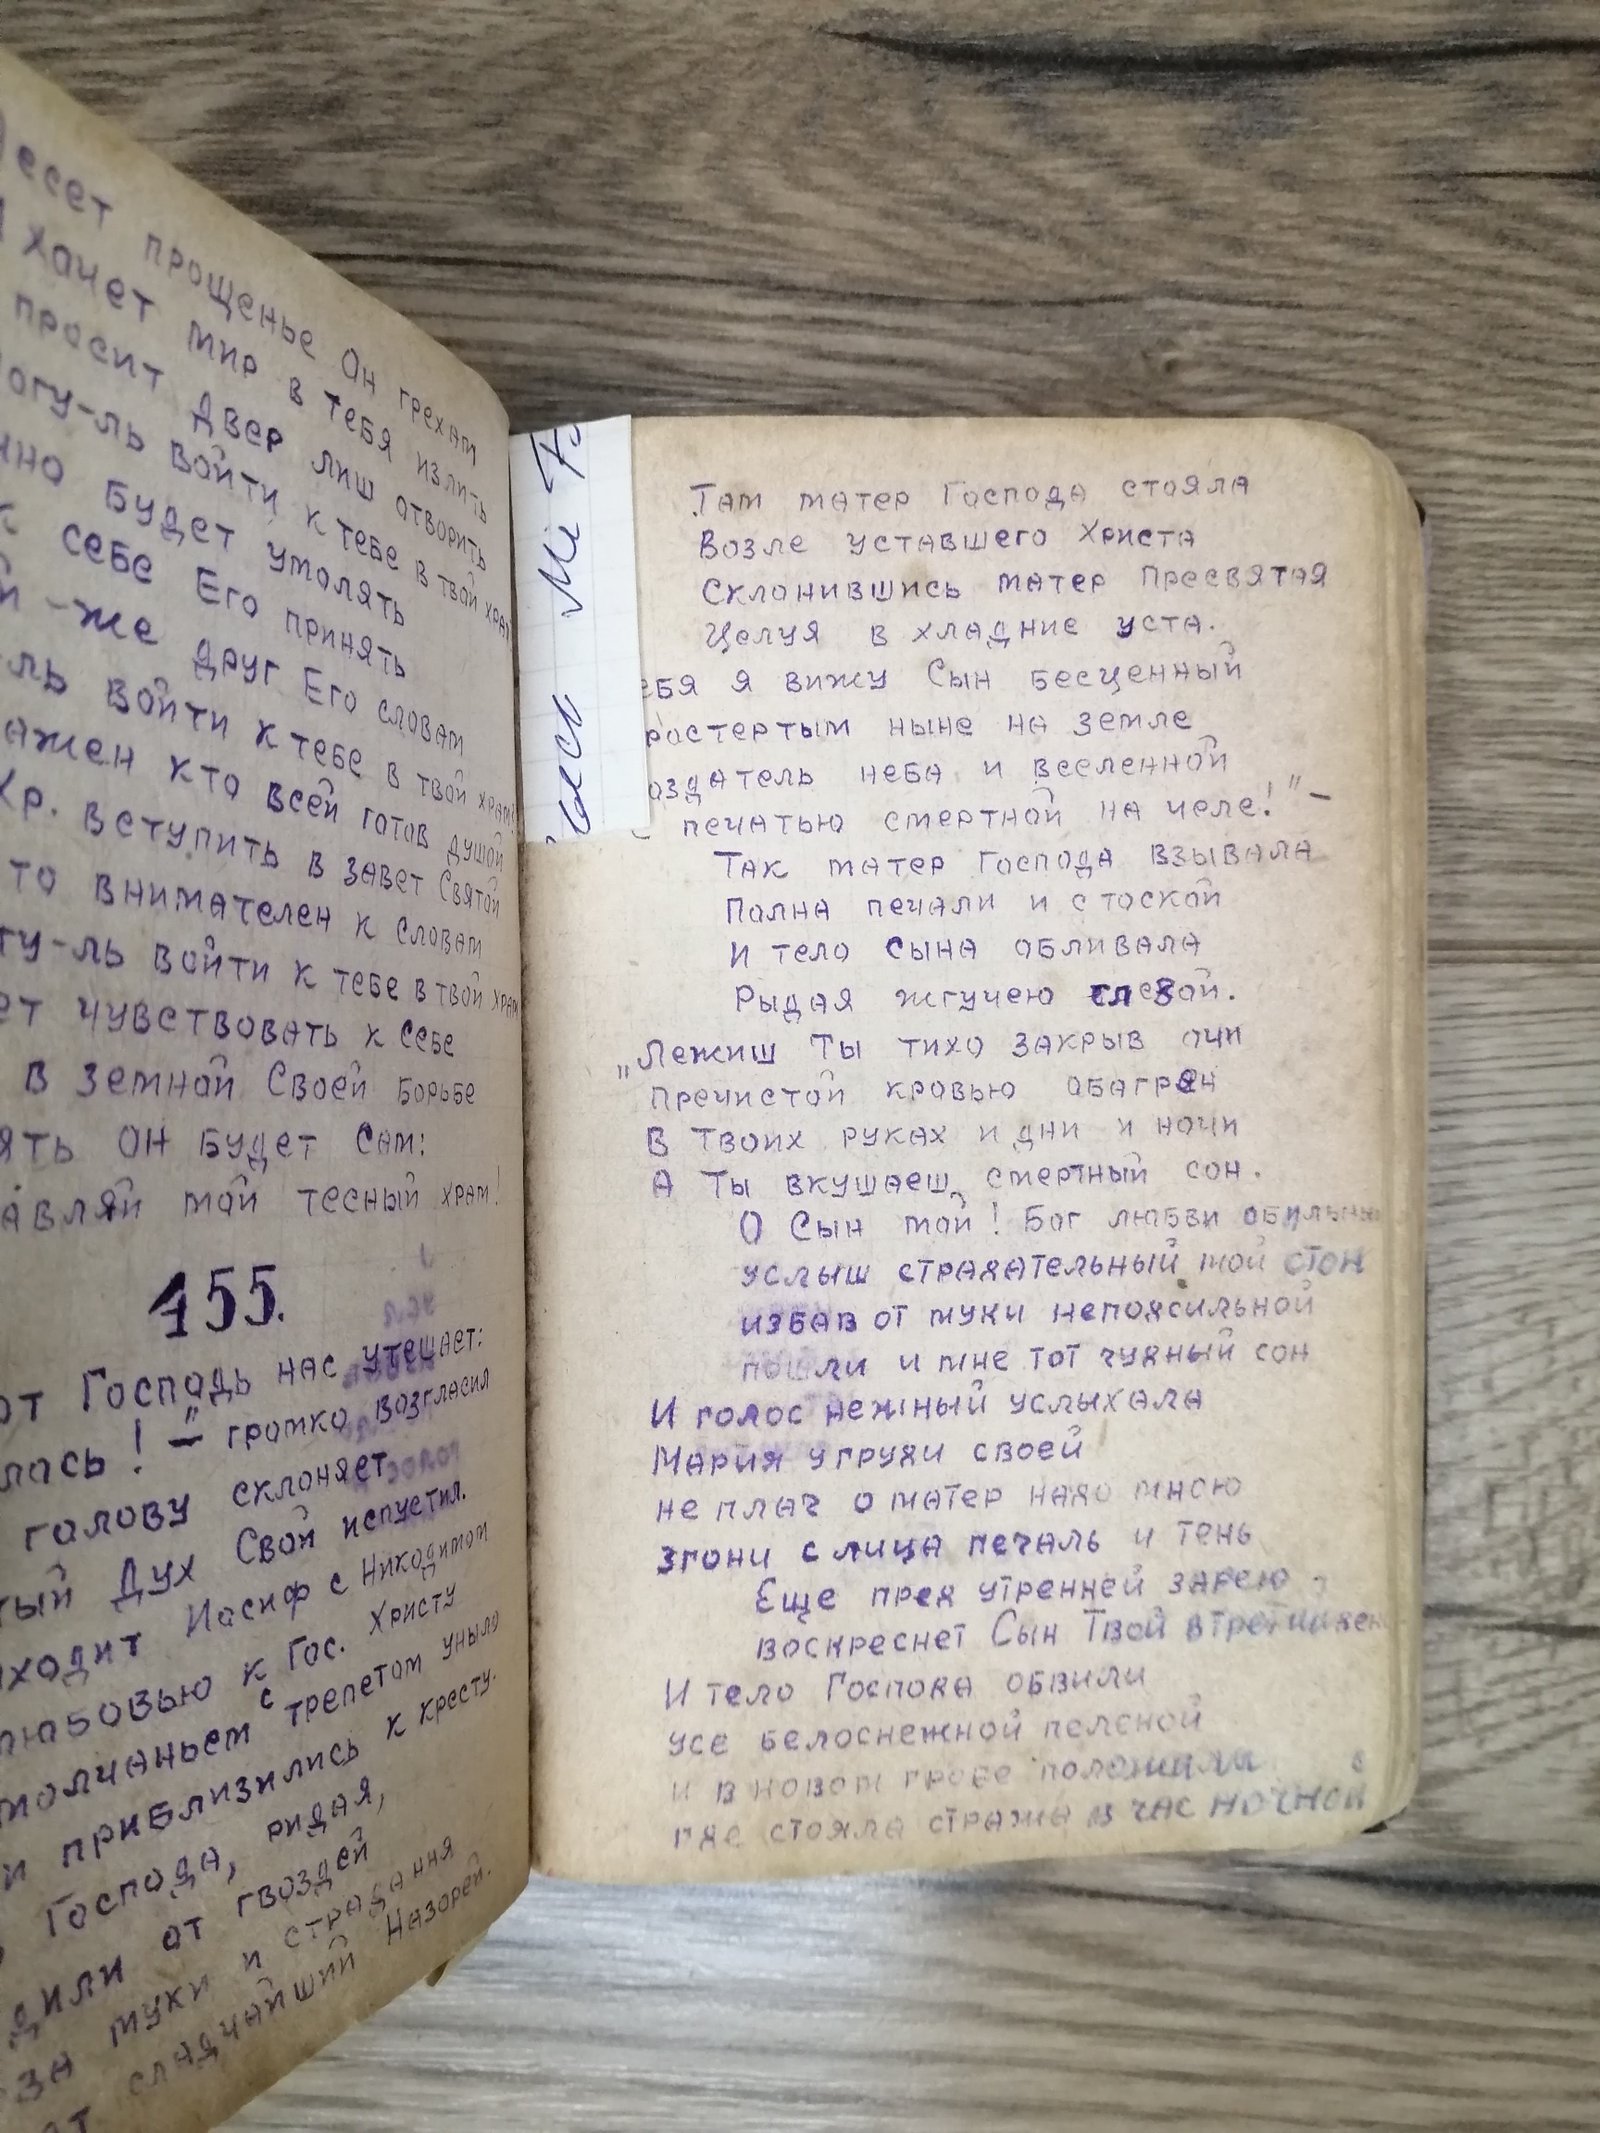 есет прощенье Он грехам
хачет мир в тебя излить
просит двер лиш отворить
огу-ль войти к тебе в твой храм
но будет умолять
к себе Его принять
й-же друг Его словам
ль войти к тебе в твой храм!
ажен кто всей готов душой
Хр. вступить в завет Святой
то внимателен к словам
гу-ль войти к тебе в твой храм
ет чувствовать к себе
в земной Своей борьбе
ять он будет сам:
авляй мой тесный храм!
155.
от Господь нас утешает:
лась!" — громко возгласил
голову склоняет
тый Дух Свой испустил.
иходит Иасиф с Никодимом
любовью к Гос. Христу
молчаньем с трепетом уныло
и приблизились к кресту.
Господа, ридая,
дили от гвоздей
за муки и страдання
ат сладчайший Назорей.
Мі
Там матер Господа стояла
Возле уставшего Христа
Склонившись матер Пресвятая
Целуя в хладние уста.
ебя я вижу Сын бесценный
ростертым ныне на земле
оздатель неба и вселенной
с печатью смертной на челе!" —
Так матер Господа взывала
Полна печали и с тоской
И тело сына обливала
Рыдая жгучею слезой.
„Лежиш Ты тихо закрыв очи
Пречистой кровью абагрен
В твоих руках и дни и ночи
А Ты вкушаеш, смертный сон.
О Сын мой! Бог любви обильный
услыш страдательный мой стон
избав от муки непоясильной
пошли и мне тот чудный сон
И голос нежный услыхала
Мария у груди своей
не плач о матер надо мною
згони с лица печаль и тень
Еще пред утренней зарею
воскреснет Сын Твой в третий ден
И тело Господа обвили
усе белоснежной пеленой
и в новом гробе положили
где стояла стража в час ночной